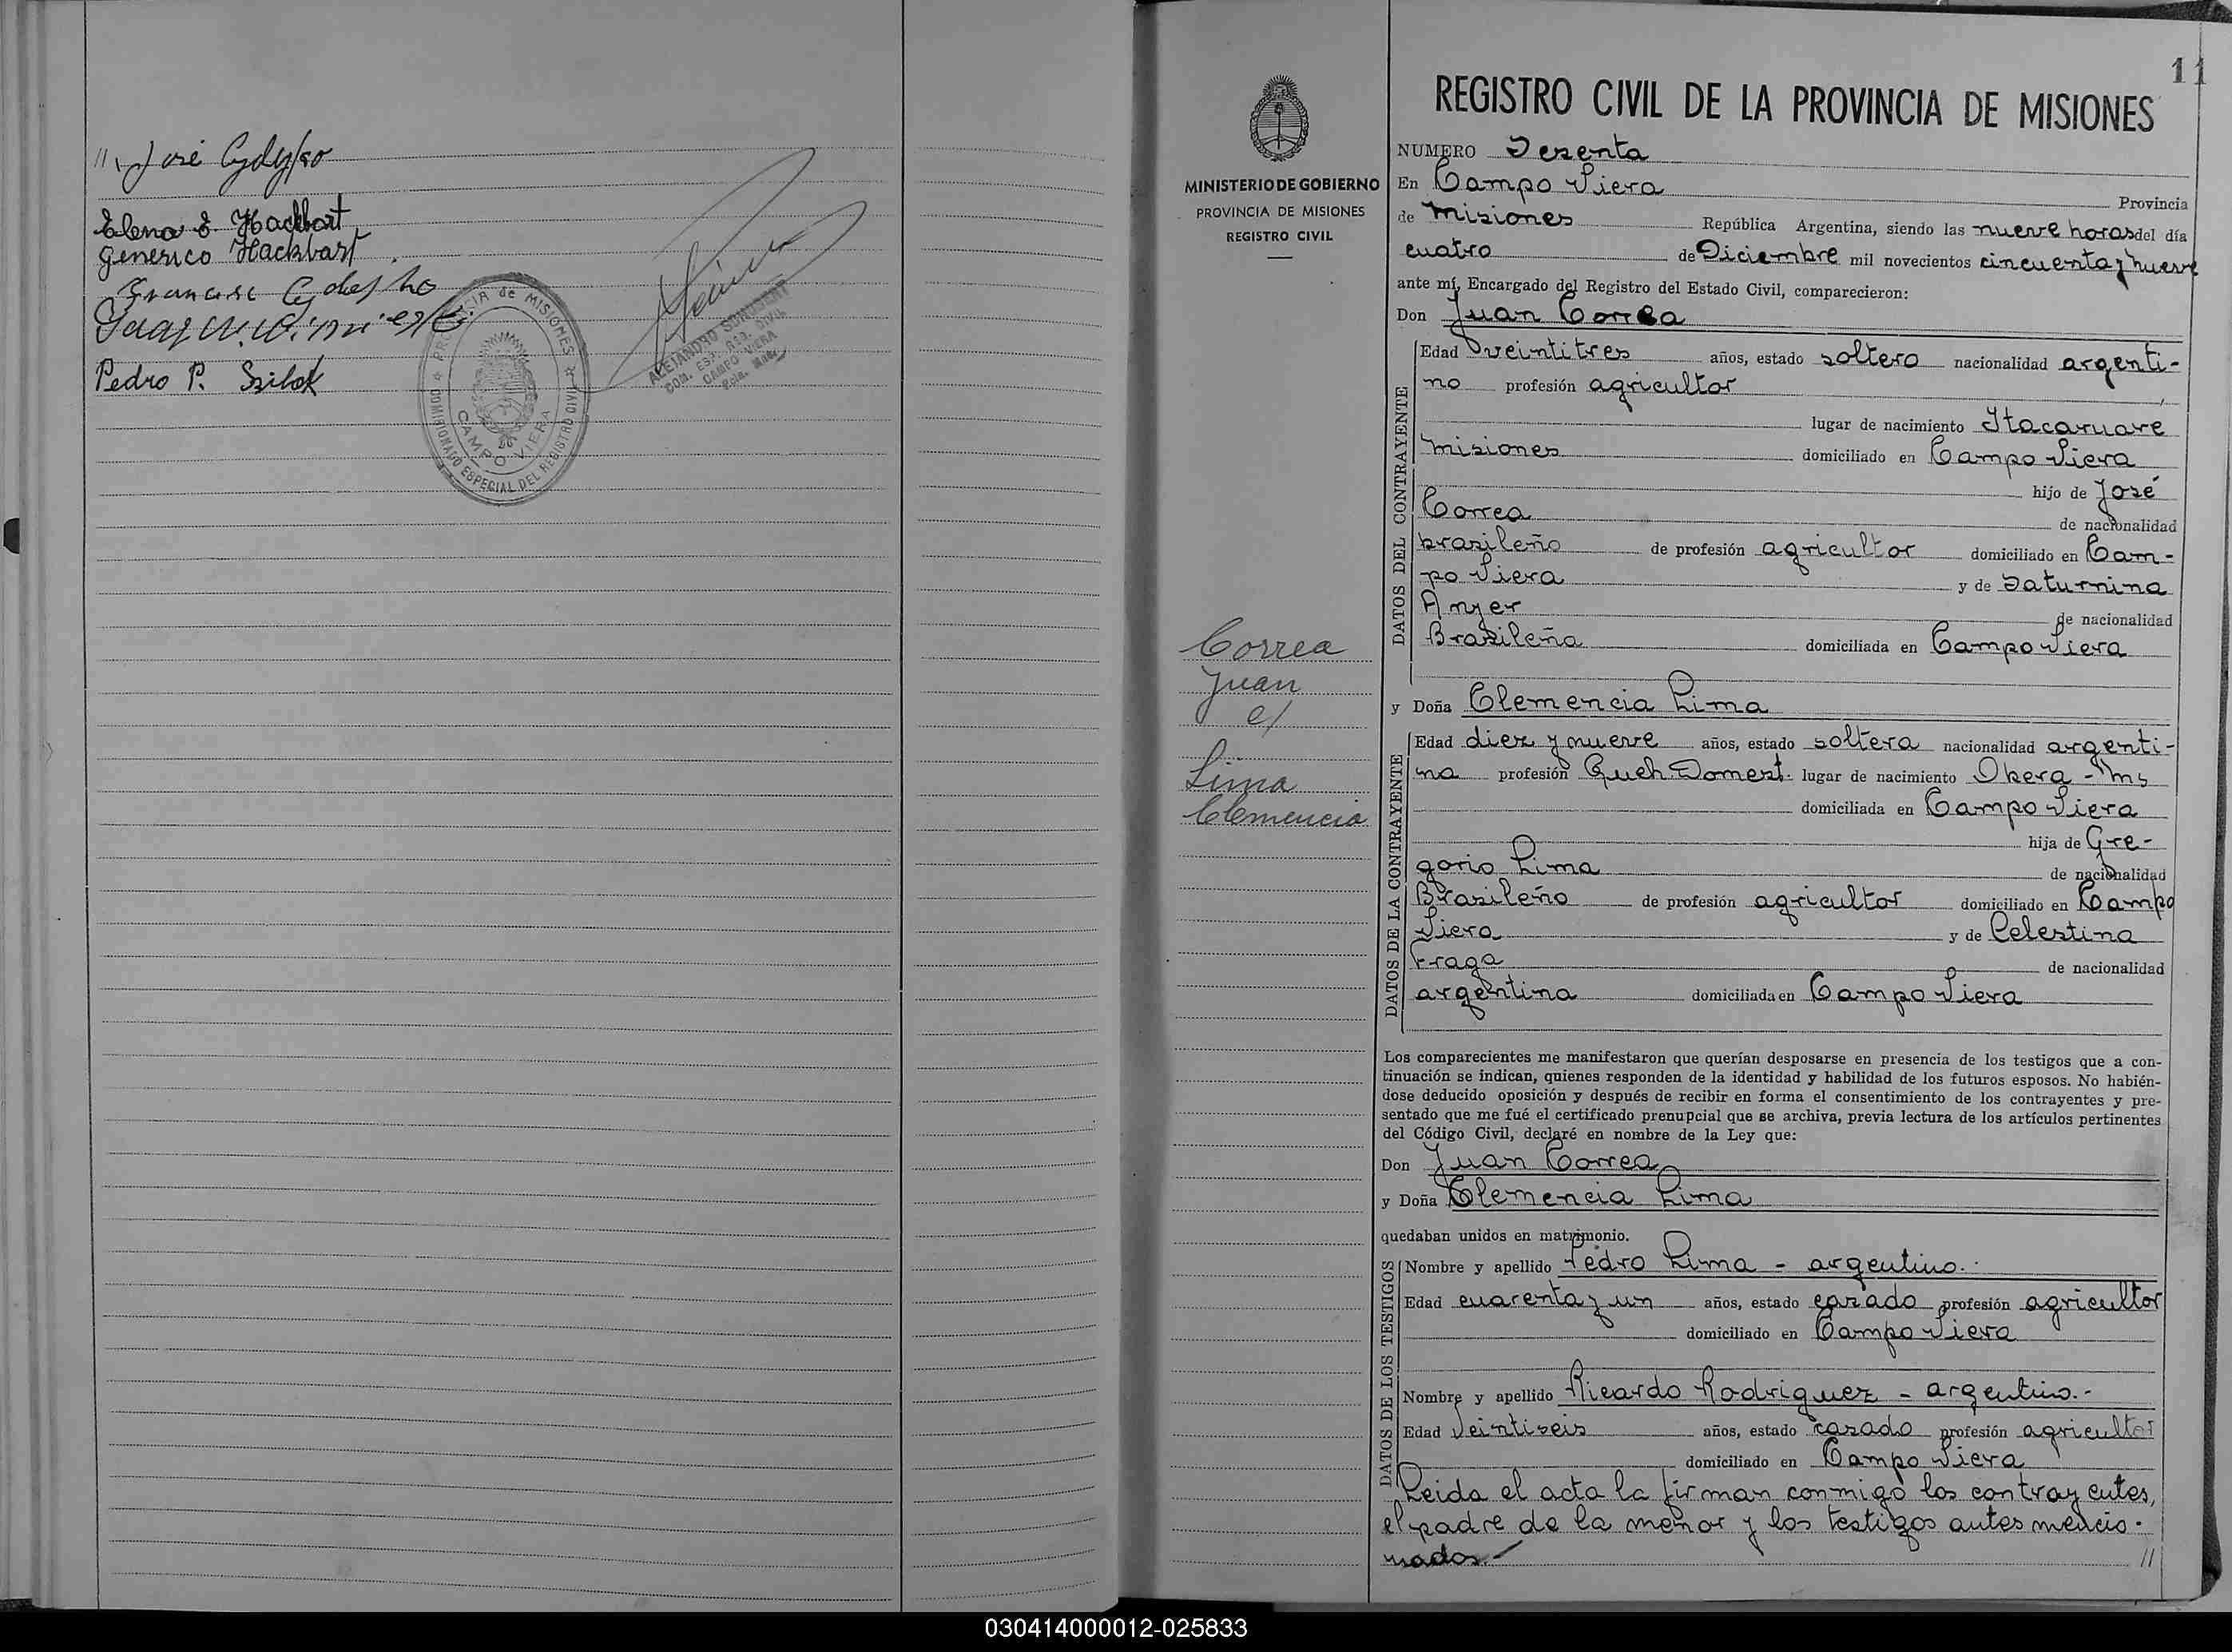 José
Elena E. Hackbart
Generico Hackbart
Pedro P.
PROVINCIA de MISIONES
COMISIONADO ESPECIAL DEL REGISTRO CIVIL
CAMPO VIERA
ALEJANDRO
COM. ESP. REG. CIVIL
CAMPO VIERA
Pcia. Mnes.
11
MINISTERIO DE GOBIERNO
PROVINCIA DE MISIONES
REGISTRO CIVIL
Correa
Juan
c/
Lima
Clemencia
REGISTRO CIVIL DE LA PROVINCIA DE MISIONES
NUMERO Sesenta
En Campo Viera Provincia
de Misiones República Argentina, siendo las nueve horas del día
cuatro de Diciembre mil novecientos cincuenta y nueve
ante mí, Encargado del Registro del Estado Civil, comparecieron:
Don Juan Correa
DATOS DEL CONTRAYENTE
Edad veintitres años, estado soltero nacionalidad argenti-
no profesión agricultor
lugar de nacimiento Itacaruare
Misiones domiciliado en Campo Viera
hijo de José
Correa de nacionalidad
brasileño de profesión agricultor domiciliado en Cam-
po Viera y de Saturnina
Anyer de nacionalidad
Brasileña domiciliada en Campo Viera
y Doña Clemencia Lima
DATOS DE LA CONTRAYENTE
Edad diez y nueve años, estado soltera nacionalidad argenti-
na profesión Queh. Domest. lugar de nacimiento Obera - Ms
domiciliada en Campo Viera
hija de Gre-
gorio Lima de nacionalidad
Brasileño de profesión agricultor domiciliado en Campo
Viera y de Celestina
Fraga de nacionalidad
argentina domiciliada en Campo Viera
Los comparecientes me manifestaron que querían desposarse en presencia de los testigos que a con-
tinuación se indican, quienes responden de la identidad y habilidad de los futuros esposos. No habién-
dose deducido oposición y después de recibir en forma el consentimiento de los contrayentes y pre-
sentado que me fué el certificado prenupcial que se archiva, previa lectura de los artículos pertinentes
del Código Civil, declaré en nombre de la Ley que:
Don Juan Correa
y Doña Clemencia Lima
quedaban unidos en matrimonio.
DATOS DE LOS TESTIGOS
Nombre y apellido Pedro Lima - argentino.
Edad cuarenta y un años, estado casado profesión agricultor
domiciliado en Campo Viera
Nombre y apellido Ricardo Rodriguez - argentino.-
Edad Veintiseis años, estado casado profesión agricultor
domiciliado en Campo Viera
Leida el acta la firman conmigo los contrayentes,
el padre de la menor y los testigos antes mencio-
nados.- //
030414000012-025833